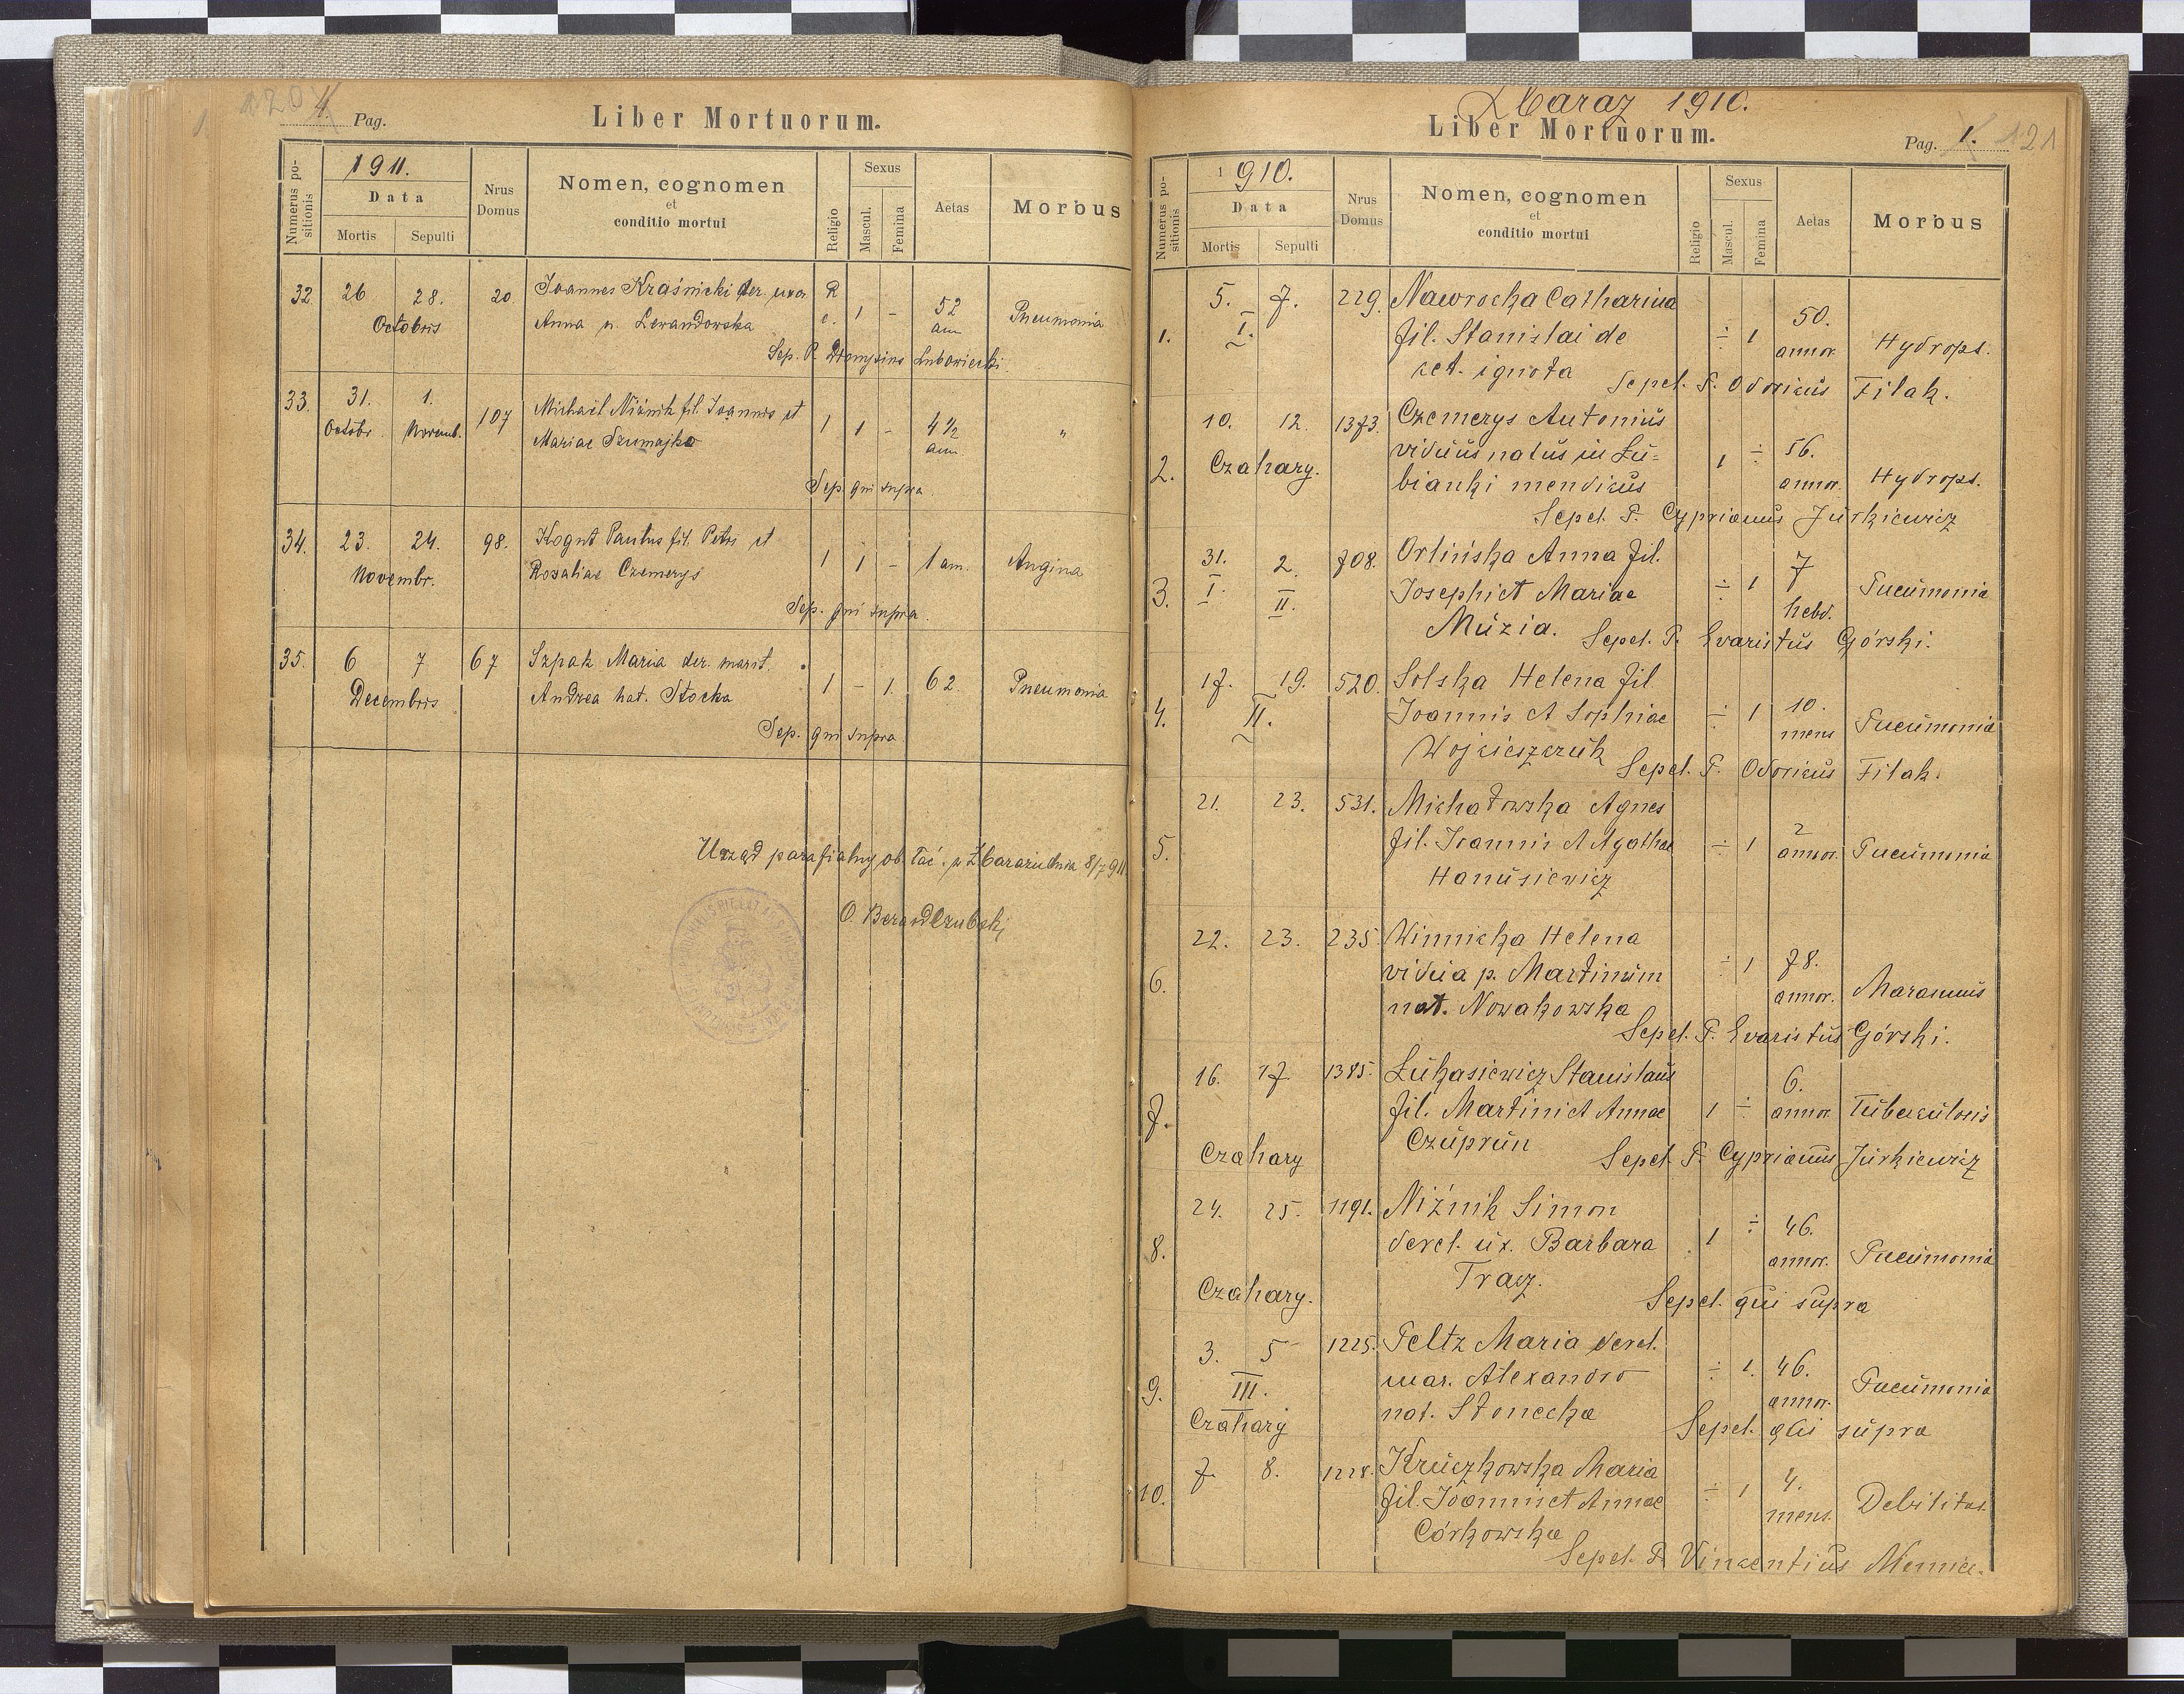 120 4. Pag.
Liber Mortuorum.
Numerus positionis
1911.
Data
Mortis Sepulti
Nrus Domus
Nomen, cognomen
et
conditio mortui
Religio
Sexus
Mascul. Femina
Aetas
Morbus
32. 26 28. 20. Joannes Kraśnicki der. uxor. R
Octobris Anna n. Lewandowska c. 1 - 52 ann Pneumonia
Sep. P. Dionysius Lubowiecki.
33. 31. 1. 107 Michaël Niżnik fil. Joannis et
Octobr. Novemb. Mariae Szumajko 1 1 - 4 1/2 ann "
Sep. qui supra.
34. 23. 24. 98. Kogut Paulus fil. Petri et
Novembr. Rozaliae Czemerys 1 1 - 1 ann. Angina
Sep. qui supra.
35. 6 7 67 Szpak Maria der. marit.
Decembris Andrea nat. Stocka 1 - 1. 62. Pneumonia
Sep. qui supra
Urząd parafialny ob. łać. w Zbarażu dnia 8/7 911
O. Bernard Czubski
Zbaraz 1910.
Liber Mortuorum.
Pag. 1. 121
Numerus positionis
1910.
Data
Mortis Sepulti
Nrus Domus
Nomen, cognomen
et
conditio mortui
Religio
Sexus
Mascul. Femina
Aetas
Morbus
1. 5. 7. 229. Nawrocka Catharina
I. fil. Stanislai de ÷ 1 50. annor. Hydrops.
cet. ignota
Sepel. P. Odoricus Filak.
2. 10. 12. 1373. Czemerys Antonius
Czahary. viduus natus in Łu=
bianki mendicus 1 ÷ 56. annor. Hydrops.
Sepel. P. Cyprianus Jurkiewicz
3. 31. I. 2. II. 708. Orlińska Anna fil.
Josephi et Mariae ÷ 1 7 hebd. Pneumonia
Muzia.
Sepel. P. Evaristus Górski.
4. 17. 19. 520. Solska Helena fil.
II. Joannis et Sophiae ÷ 1 10. mens Pneumonia
Wojcieszczuk
Sepel. P. Odoricus Filak.
5. 21. 23. 531. Michałowska Agnes
fil. Joannis et Agathae ÷ 1 2 annor. Pneumonia
Hanusiewicz
6. 22. 23. 235. Winnicka Helena
vidua p. Martinum ÷ 1 78. annor. Marasmus
nat. Nowakowska
Sepel. P. Evaristus Górski.
7. 16. 17 1385. Łukasiewicz Stanislaus
fil. Martini et Annae 1 ÷ 6. annor. Tuberculosis
Czahary Czuprun
Sepel. P. Cyprianus Jurkiewicz
8. 24. 25. 1191. Niżnik Simon
derel. ux. Barbara 1 ÷ 46. annor. Pneumonia
Czahary. Tracz.
Sepel. qui supra
9. 3. 5 1225. Peltz Maria derel.
III. mar. Alexandro ÷ 1. 46. annor. Pneumonia
Czahary nat. Słonecka
Sepel. qui supra
10. 7. 8. 1228. Kruczkowska Maria
fil. Joannis et Annae ÷ 1 4. mens. Debilitas.
Córkowska
Sepel. P. Vincentius